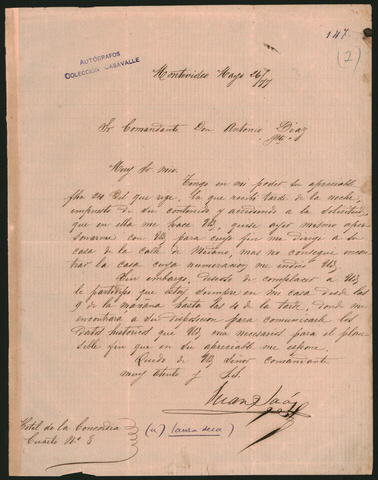 147
(2)
AUTÓGRAFOS
COLECCIÓN CASAVALLE
Montevideo Mayo 26/77
Sr Comandante Don Antonio Diaz
Pte
Muy Sr mio.
Tengo en mi poder su apreciable
fha 24 del que rige, la que recibí tarde de la noche,
impuesto de su contenido y accediendo a la solicitud,
que en ella me hace Vd, quise ayer mismo aper-
sonarme con Vd, para cuyo fin me dirigí a su
casa de la calle de Misiones, mas no consegui encon-
trar la casa cuya numeracion me indicó Vd,
Sin embargo, deseoso de complacer a Vd,
le participo que estoy siempre en mi casa desde las
9 de la mañana hasta las 4 de la tarde, donde me
encontrará a su disposicion para comunicarle los
datos historicos que Vd, crea necesarios para el plau-
sible fin que en su apreciable me espone.
Quedo de Vd Señor Comandante
muy atento y S.S.
Juan Saá
Hotel de la Concordia
Cuarto Nº 3
(a) Lanza seca)